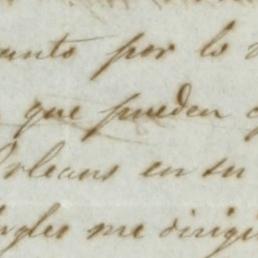 unto por lo
que pueden
Orleans en su
ngles me dirigi